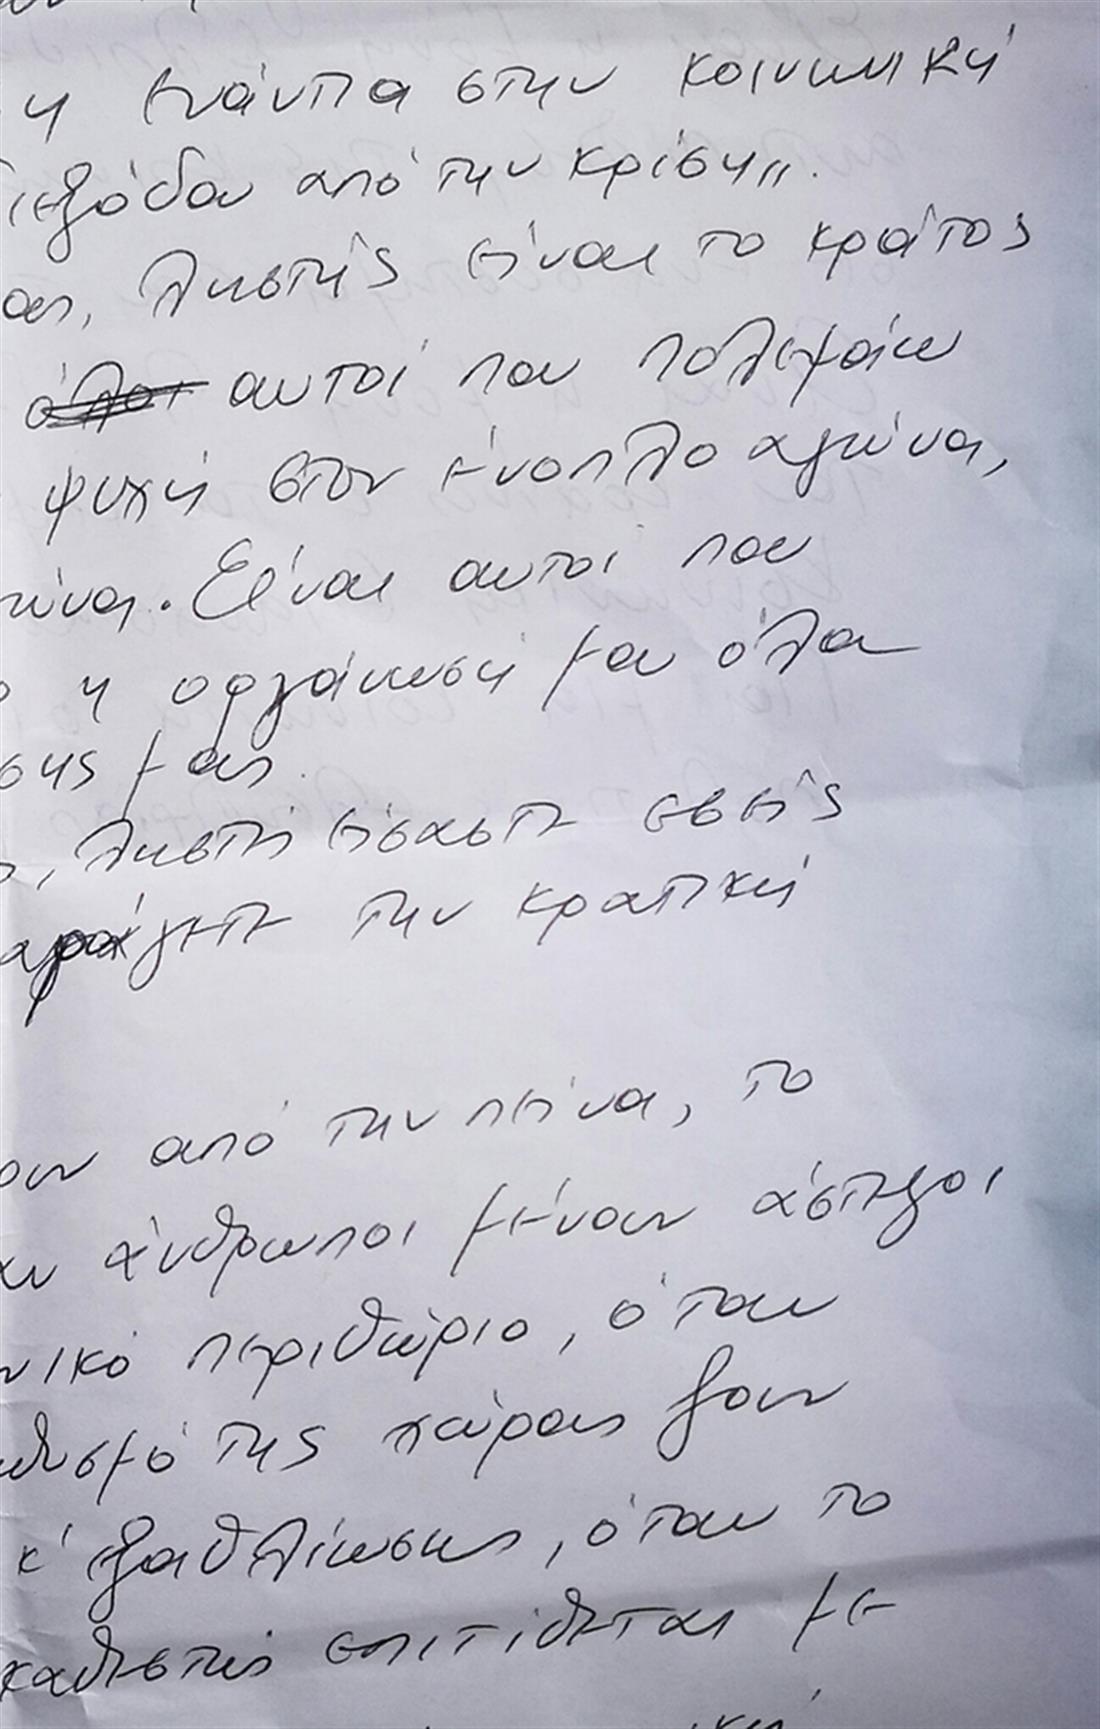 η ενάντια στην κοινωνική
διεξόδου από την κρίση".
ας, ληστής είναι το κράτος
όλοι αυτοί που πολεμάω
ψυχή στον ένοπλο αγώνα,
Είναι αυτοί που
η οργάνωσή μου όλα
σης μας.
, ληστές είσαστε εσείς
την κρατική
ουν από την πείνα, το
άνθρωποι μένουν άστεγοι
νικό περιθώριο, όταν
θυσμό της χώρας ζουν
κ' εξαθλίωσης, όταν το
καθεστώς επιτίθεται με